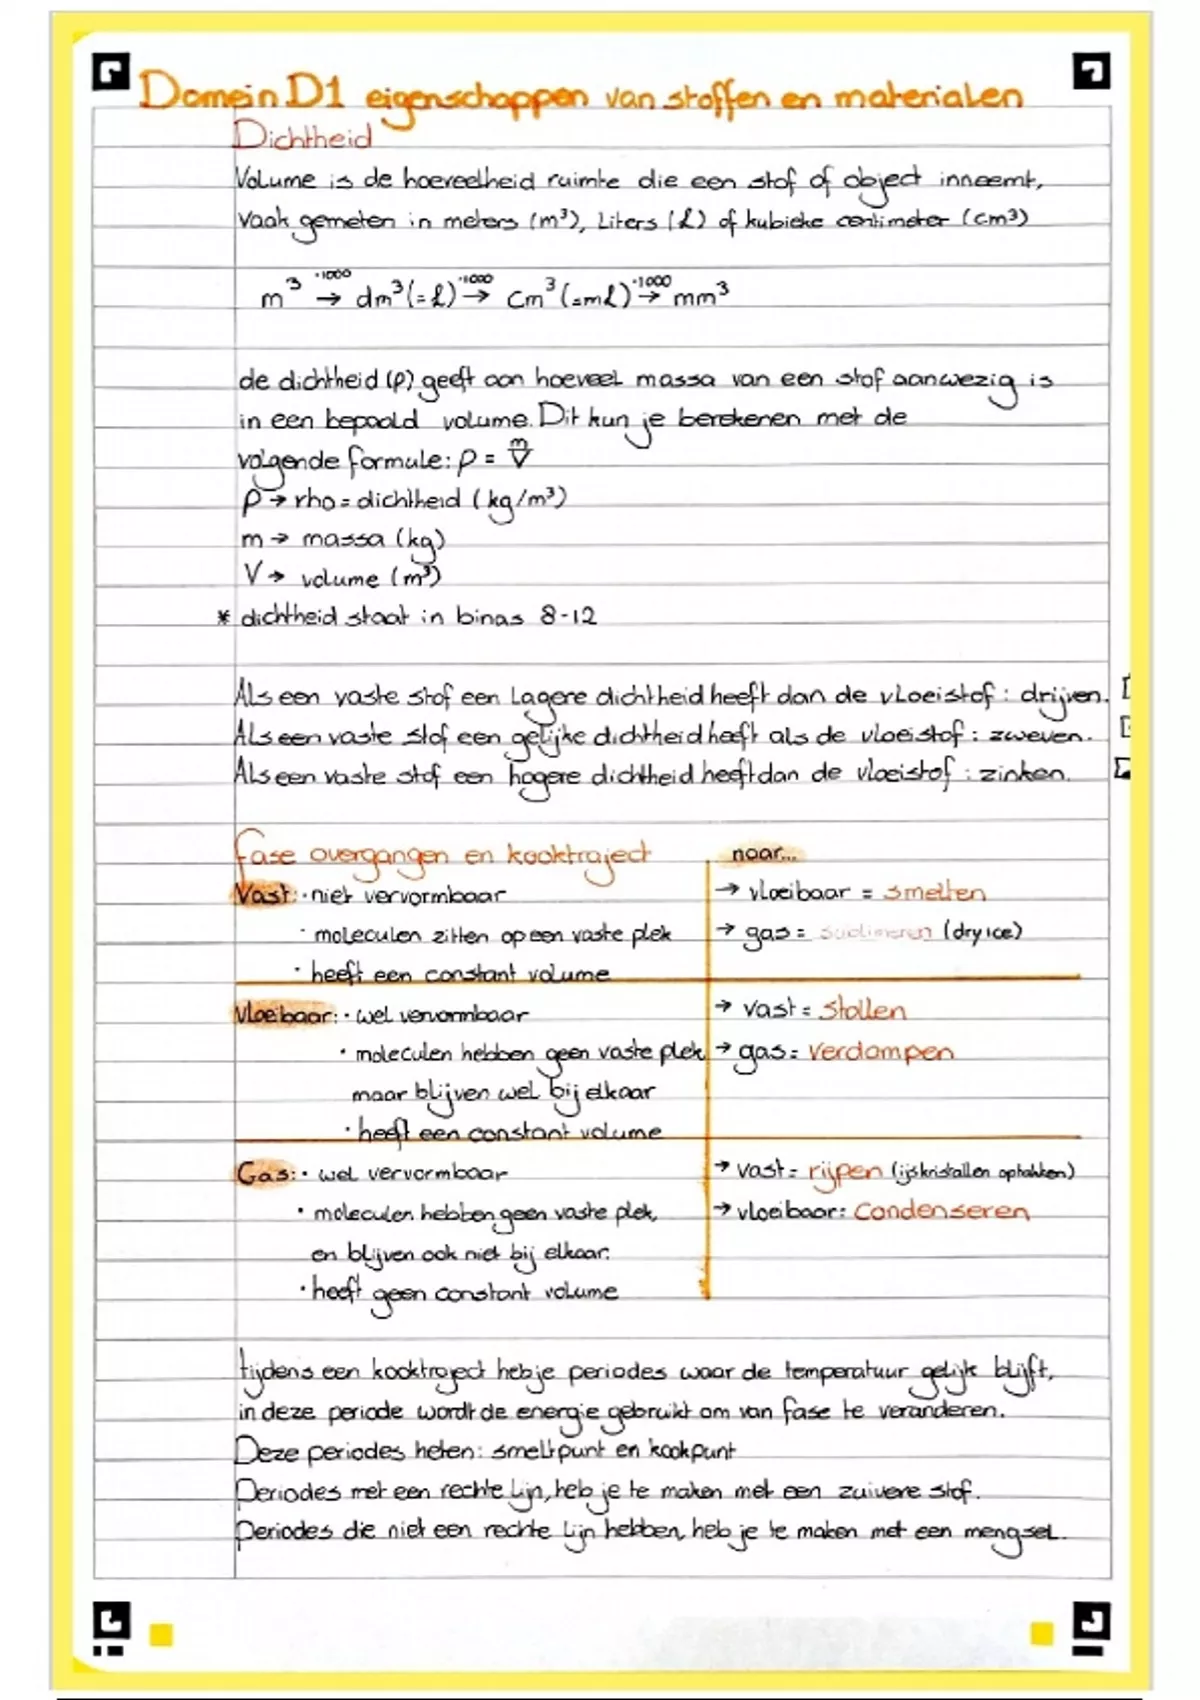 Domein D1 eigenschappen van stoffen en materialen
Dichtheid
Volume is de hoeveelheid ruimte die een stof of object inneemt,
vaak gemeten in meters (m³), Liters (ℓ) of kubieke centimeter (cm³)
m³ ·1000→ dm³(=ℓ) ·1000→ cm³(=mℓ) ·1000→ mm³
de dichtheid (ρ) geeft aan hoeveel massa van een stof aanwezig is
in een bepaald volume. Dit kun je berekenen met de
volgende formule: ρ = m/V
ρ → rho = dichtheid (kg/m³)
m → massa (kg)
V → volume (m³)
* dichtheid staat in binas 8-12
Als een vaste stof een Lagere dichtheid heeft dan de vloeistof : drijven.
Als een vaste stof een gelijke dichtheid heeft als de vloeistof : zweven.
Als een vaste stof een hogere dichtheid heeft dan de vloeistof : zinken.
fase overgangen en kooktraject naar...
Vast: · niet vervormbaar → vloeibaar = smelten
· moleculen zitten op een vaste plek → gas = sublimeren (dry ice)
· heeft een constant volume
Vloeibaar: · wel vervormbaar → vast = Stollen
· moleculen hebben geen vaste plek → gas = verdampen
maar blijven wel bij elkaar
· heeft een constant volume
Gas: · wel vervormbaar → vast = rijpen (ijskristallen op takken)
· moleculen hebben geen vaste plek, → vloeibaar: Condenseren
en blijven ook niet bij elkaar.
· heeft geen constant volume
tijdens een kooktraject heb je periodes waar de temperatuur gelijk blijft,
in deze periode wordt de energie gebruikt om van fase te veranderen.
Deze periodes heten: smeltpunt en kookpunt
Periodes met een rechte lijn, heb je te maken met een zuivere stof.
Periodes die niet een rechte lijn hebben, heb je te maken met een mengsel.